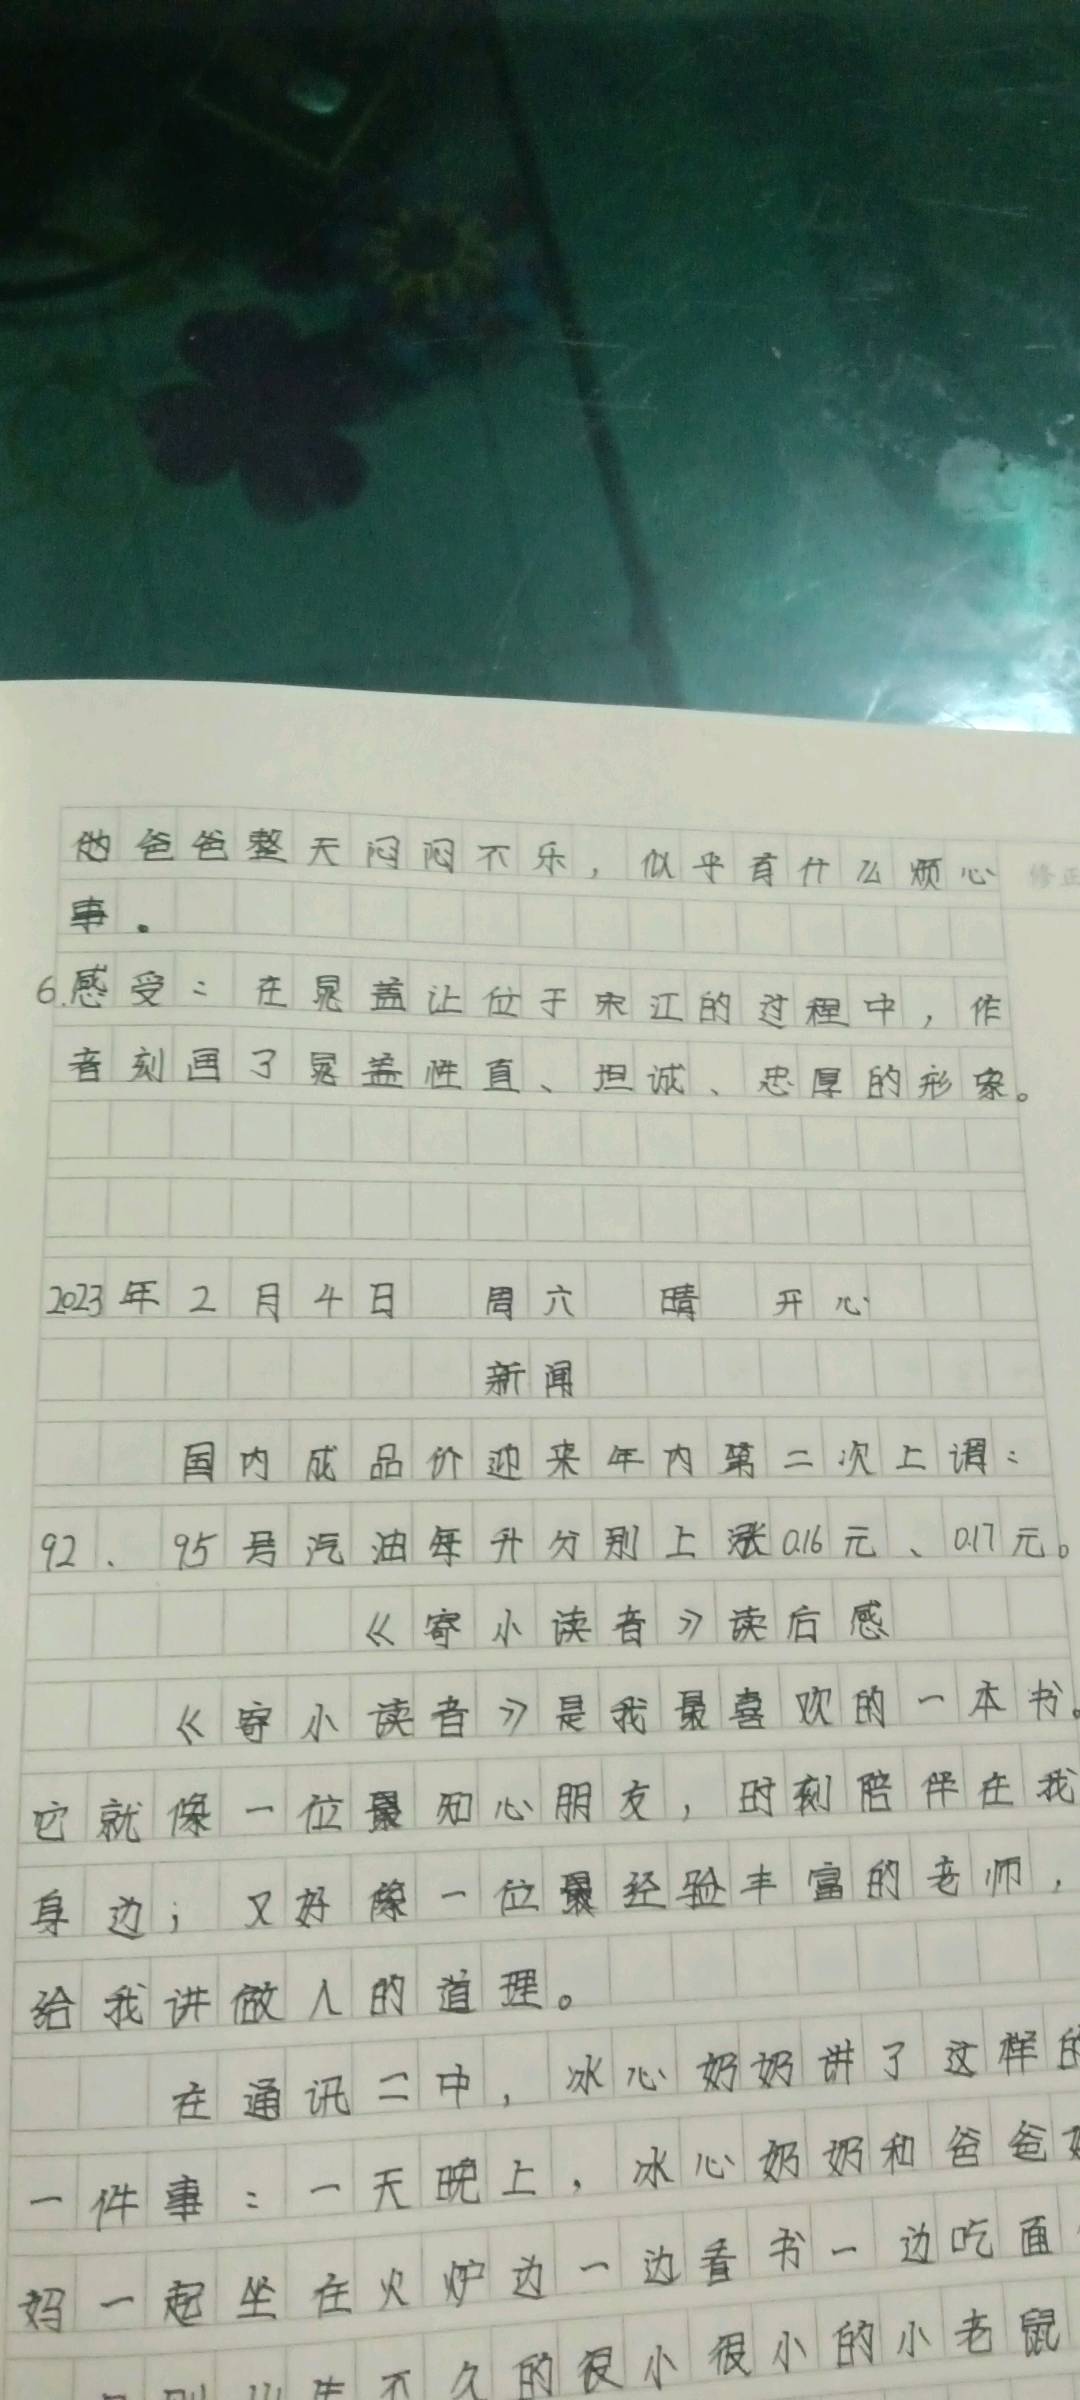 他爸爸整天闷闷不乐，似乎有什么烦心
修正
事。
6.感受：在晁盖让位于宋江的过程中，作
者刻画了晁盖性直、坦诚、忠厚的形象。
2023年2月4日 周六 晴 开心
新闻
国内成品价迎来年内第二次上调：
92、95号汽油每升分别上涨0.16元、0.17元。
《寄小读者》读后感
《寄小读者》是我最喜欢的一本书。
它就像一位最知心朋友，时刻陪伴在我
身边；又好像一位最经验丰富的老师，
给我讲做人的道理。
在通讯二中，冰心奶奶讲了这样的
一件事：一天晚上，冰心奶奶和爸爸
妈一起坐在火炉边一边看书一边吃面
不久的很小很小的小老鼠